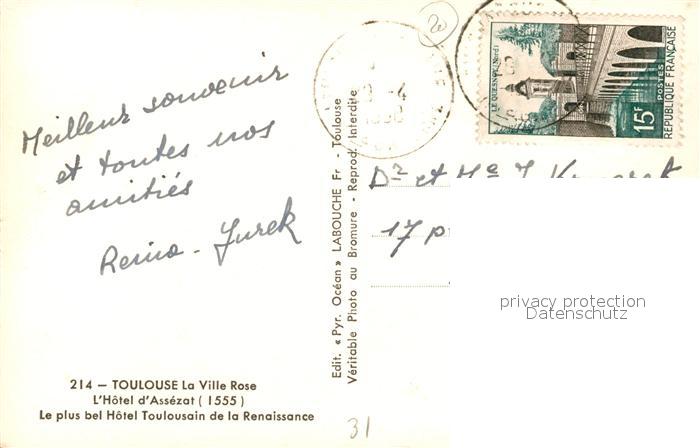 Meilleur souvenir
et toutes nos
amitiés
Rema - Jurek
214 — TOULOUSE La Ville Rose
L'Hôtel d'Assézat ( 1555 )
Le plus bel Hôtel Toulousain de la Renaissance
Edit. « Pyr. Océan » LABOUCHE Fr - Toulouse
Véritable Photo au Bromure - Reprod. Interdite
20
LE QUESNOY (Nord)
15F
POSTES
REPUBLIQUE FRANÇAISE
Dr et Me J
17
privacy protection
Datenschutz
31